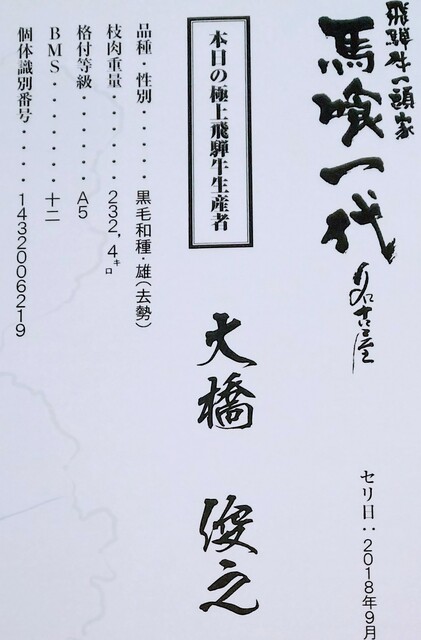 飛騨牛一頭家
馬喰一代
名古屋
セリ日：2018年9月
本日の極上飛騨牛生産者
大橋 俊之
品種・性別・・・・・黒毛和種・雄（去勢）
枝肉重量・・・・・・232，4キロ
格付等級・・・・・・A5
BMS・・・・・・・十二
個体識別番号・・・・1432006219